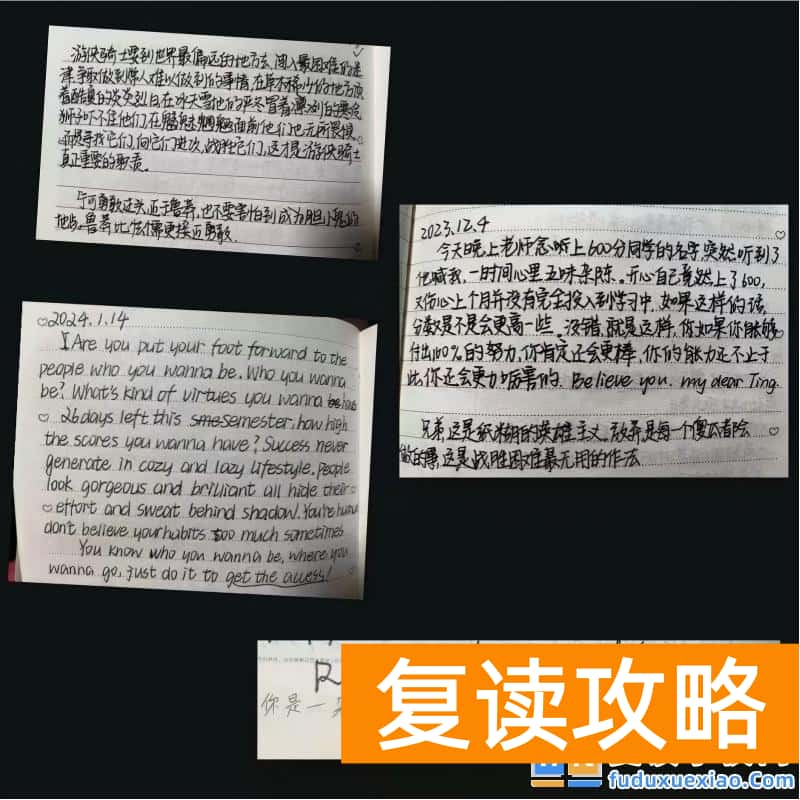 游侠骑士要到世界最偏远的地方去,闯入最困难的迷
津,争取做到常人难以做到的事情,在草木稀少的地方顶
着酷夏的炎炎烈日,在冰天雪地的严冬冒着凛冽的寒风
狮子吓不住他们,在魑魅魍魉面前他们也无所畏惧
而是寻找它们,向它们进攻,战胜它们,这才是游侠骑士
真正重要的职责。
宁可勇敢过头近于鲁莽,也不要害怕到成为胆小鬼的
地步,鲁莽比怯懦更接近勇敢
2023.12.4
今天晚上老师念听上600分同学的名字,突然听到了
他喊我,一时间心里五味杂陈。开心自己竟然上了600,
又伤心上个月并没有完全投入到学习中,如果这样的话,
分数是不是会更高一些。没错,就是这样,你如果你能够
付出100%的努力,你肯定还会更棒,你的能力还不止于
此,你还会更加厉害的. Believe you. my dear Ting.
兄弟,这是纸糊的英雄主义,放弃是每个傻瓜都会
做的事,这是战胜困难最无用的作法
♡2024.1.14
I Are you put your foot forward to the
people who you wanna be. Who you wanna
be? What's kind of virtues you wanna be have
26days left this sme semester, how high
the scores you wanna have? Success never
generate in cozy and lazy lifestyle. People
look gorgeous and brilliant all hide their
♡ effort and sweat behind shadow. You're human
don't believe your habits too much sometimes
You know who you wanna be, where you
wanna go, just do it to get the access!
你是一
复读攻略
fuduxuexiao.com